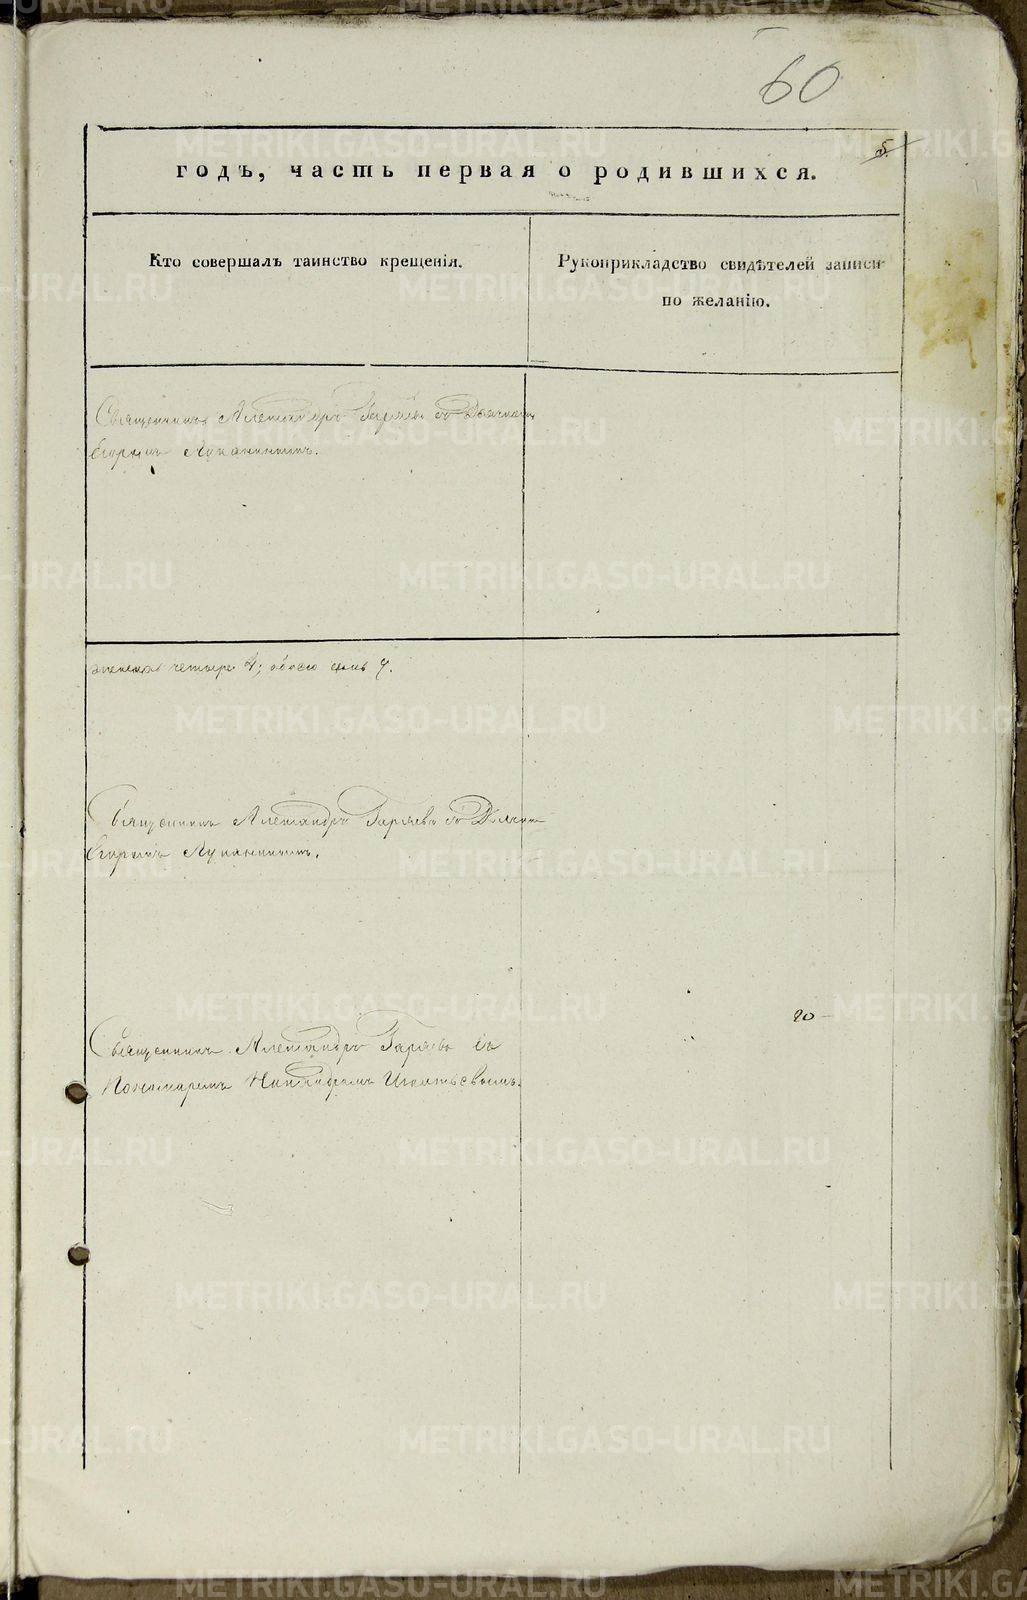 60
5.
годъ, часть первая о родившихся.
Кто совершалъ таинство крещенія.
Рукоприкладство свидѣтелей записи
по желанію.
Священникъ Александръ Гаряевъ съ Дьячкомъ
Егоромъ Лукановымъ.
женска четыре 4; обоего семь 7.
Священникъ Александръ Гаряевъ съ Дьячкомъ
Егоромъ Лукановымъ.
20
Священникъ Александръ Гаряевъ съ
Пономаремъ Никандромъ Игнатьевымъ.
METRIKI.GASO-URAL.RU